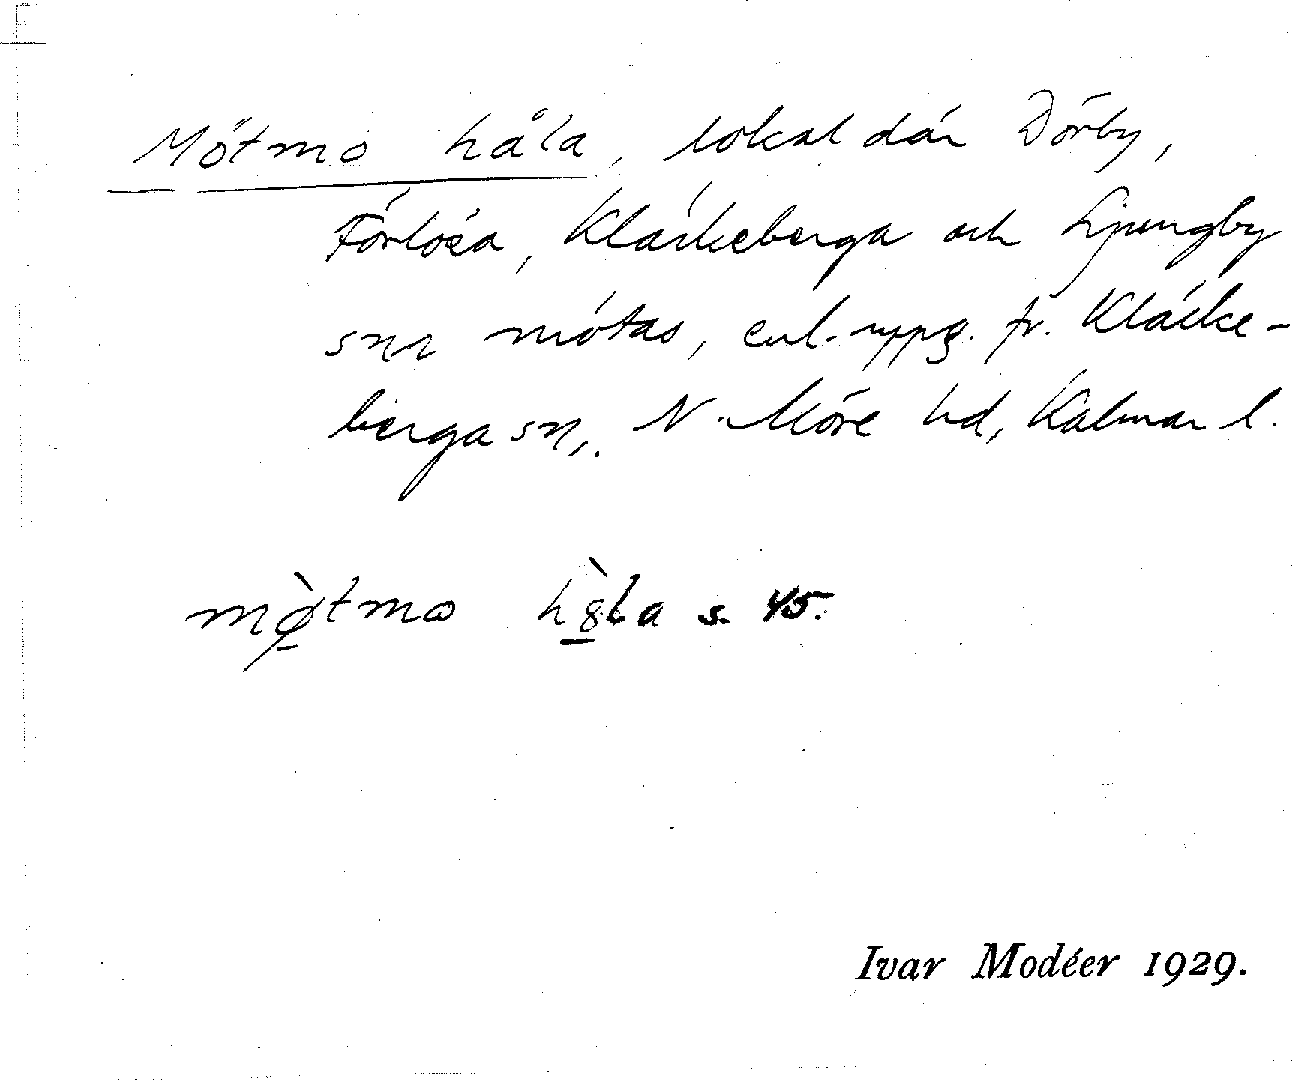 Mötmo håla, lokal där Dörby,
Förlösa, Kläckeberga och Ljungby
snr mötas, enl. uppg. fr. Kläcke-
berga sn, N. Möre hd, Kalmar l.
mø̀tmo h8̀la s. 45.
Ivar Modéer 1929.